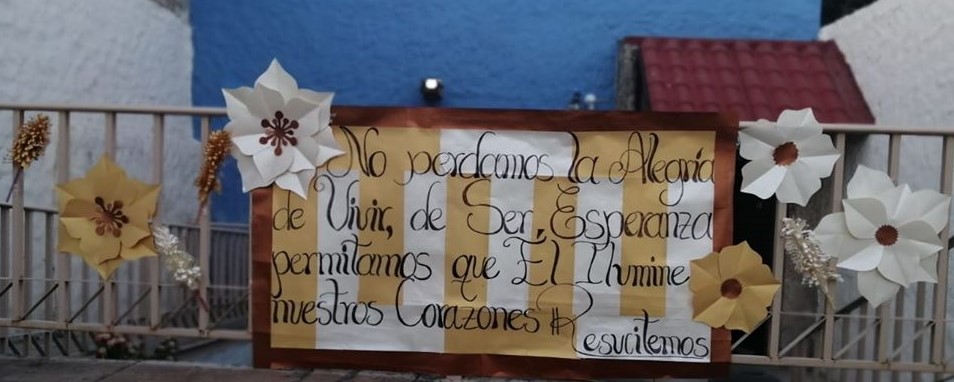 No perdamos la Alegria
de Vivir, de Ser, Esperanza
permitamos que El Ilumine
nuestros Corazones #Resucitemos